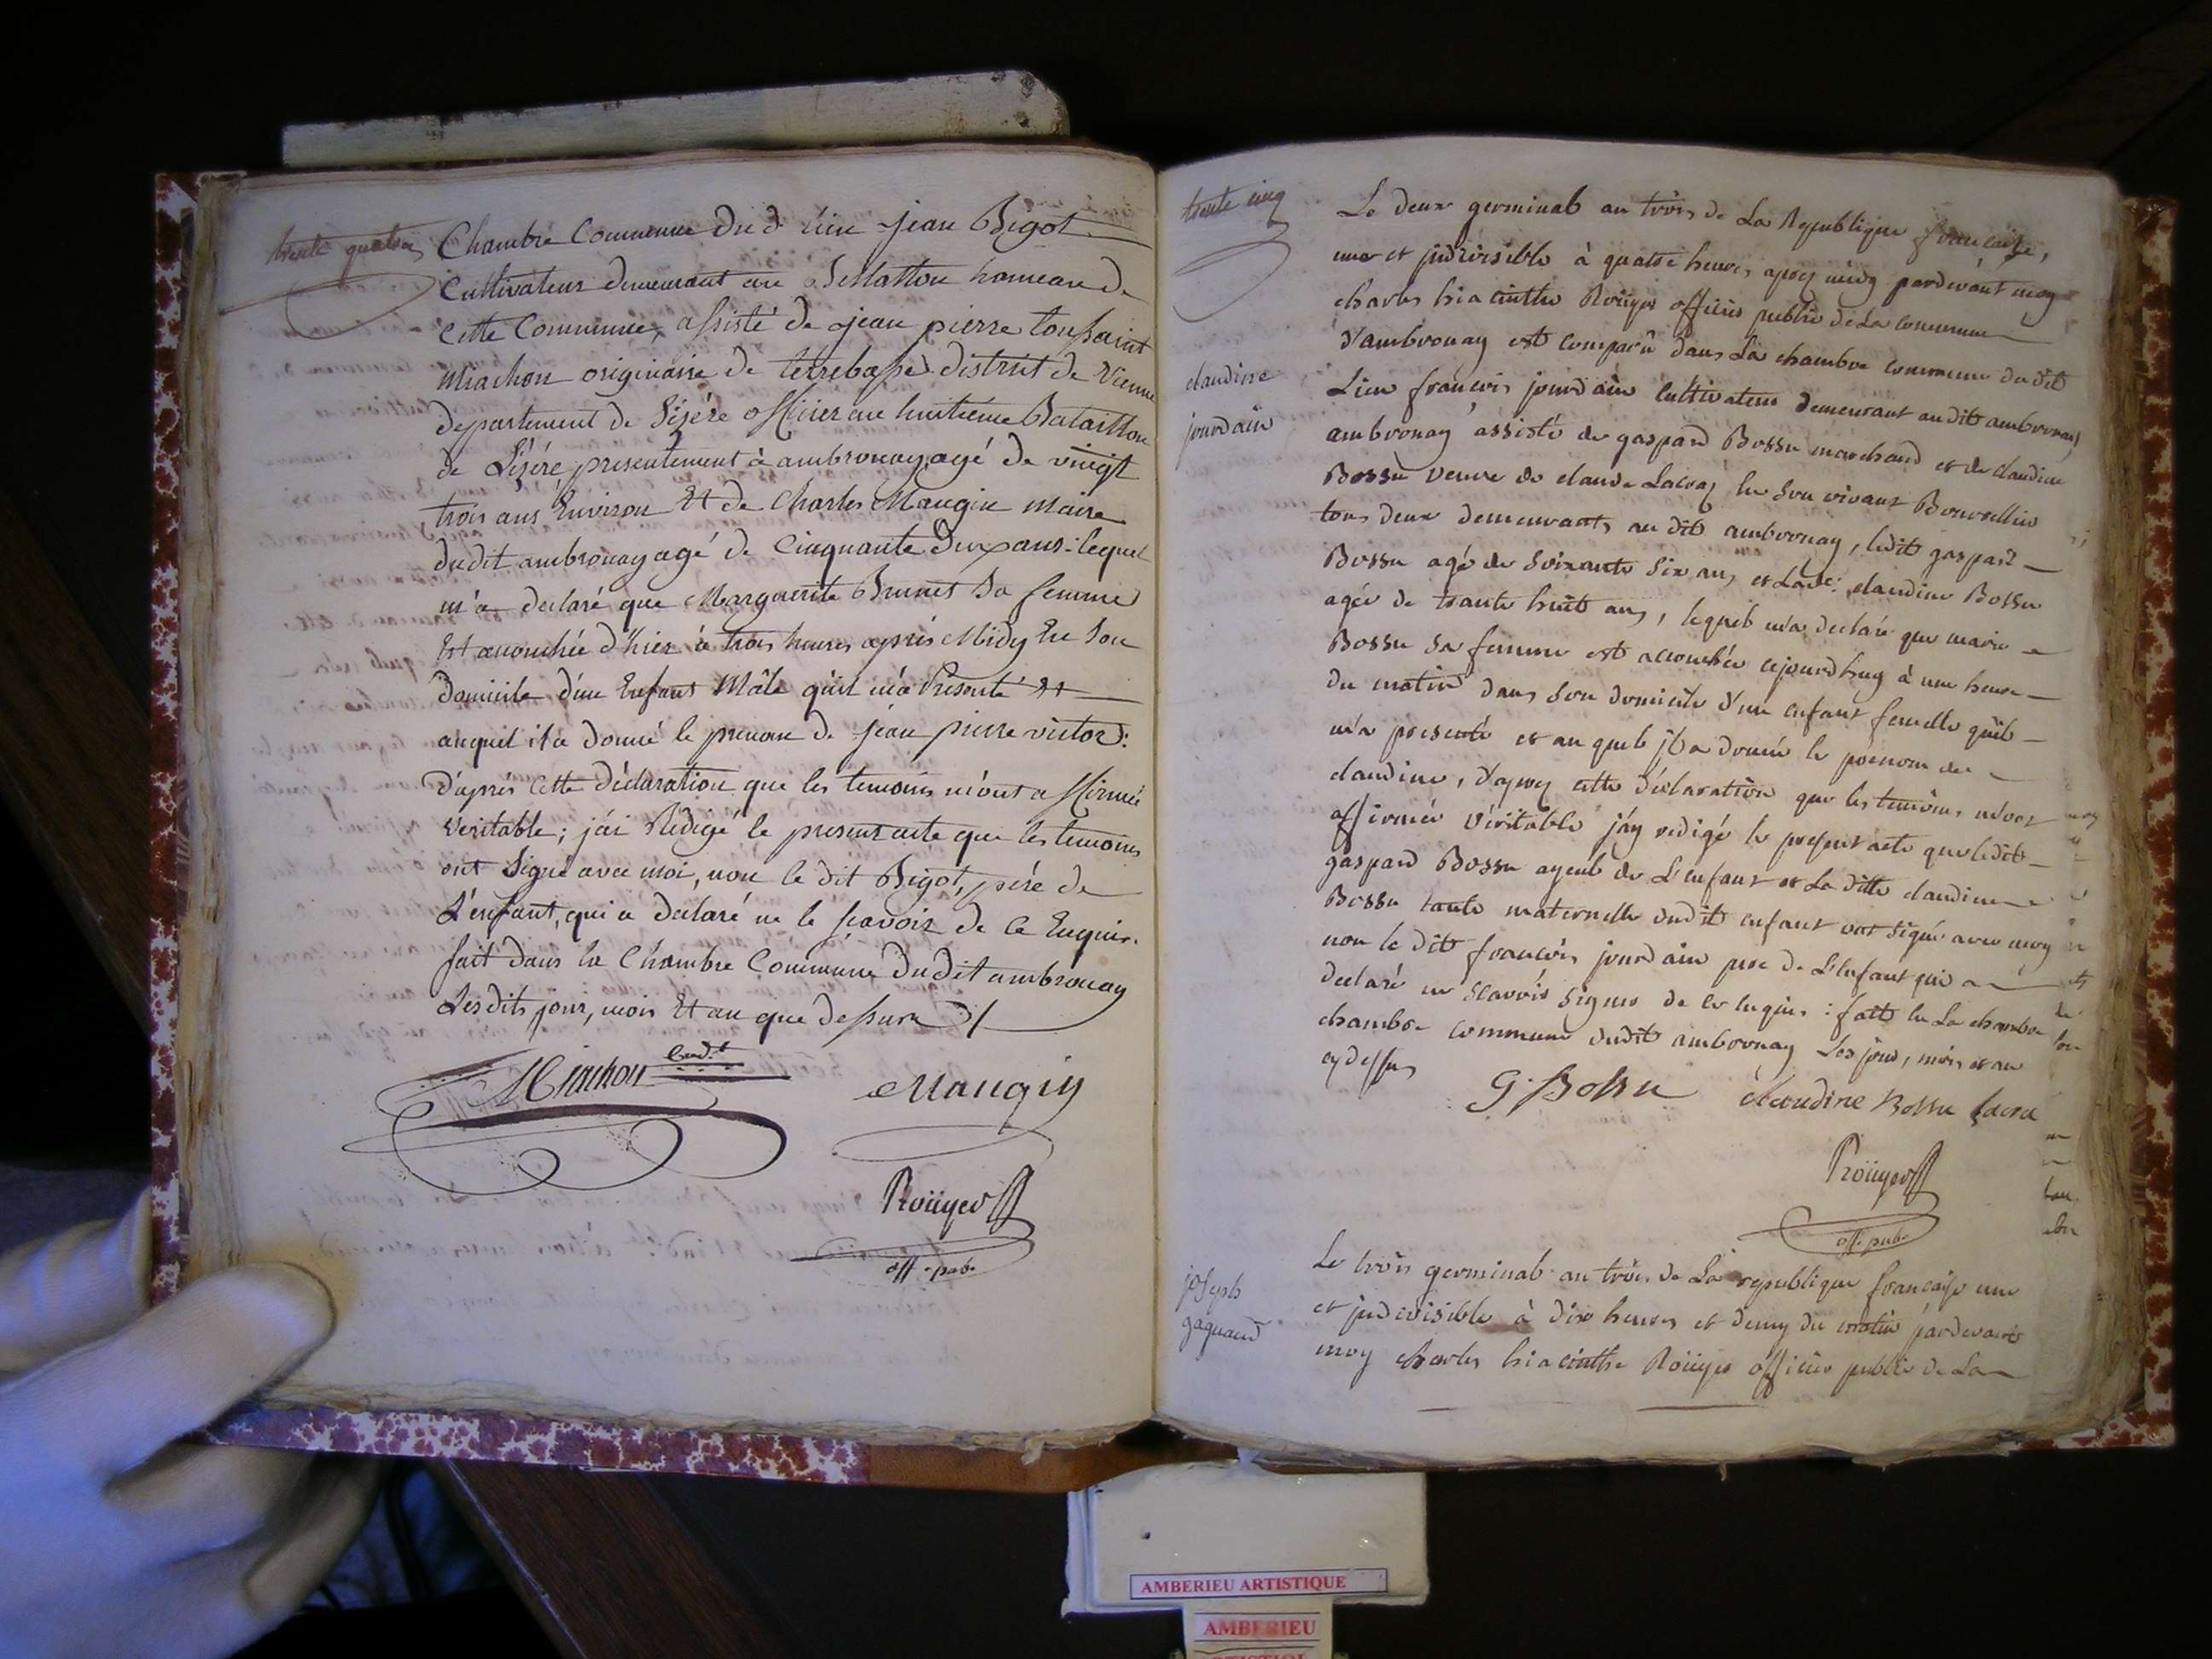 trente quatre
Chambre Commune dud. lieu jean Bigot
Cultivateur demeurant au hameau de
cette Commune, assisté de jean pierre toussaint
Miachon originaire de terrebasse district de Vienne
departement de L'isére officier au huitiéme Bataillon
de L'isére presentement à ambronay agé de vingt
trois ans Environ Et de Charles Maugin Maire
dudit ambronay agé de Cinquante deux ans: lequel
m'a declaré que Marguerite Brunet Sa femme
Est acouchée d'hier à trois heures aprés Midy En Son
domicile d'un Enfant Mâle qu'il m'a Présenté Et
auquel il a donné le prenom de jean pierre victor:
d'aprés Cette déclaration que les temoins m'ont affirmée
Veritable; j'ai Rédigé le present acte que les temoins
ont Signé avec moi, non le dit Bigot, pére de
L'enfant, qui a declaré ne le sçavoir de ce Enquis.
fait dans la Chambre Commune dudit ambronay
Lesdits jour, mois Et an que dessus
Miachon
Maugin
Roüyer
off. pub.
trente cinq
claudine
jourdain
Le deux germinal an trois de La Republique francaise,
une et jndivisible à quatre heures apres midy pardevant moy
charles hiacinthe Roüyer officier public de La commune
d'ambronay est comparû dans La chambre commune dudit
Lieu francois jourdain cultivateur demeurant audit ambronay
ambronay assisté de gaspard Bossu marchand et de claudine
Bossu veuve de claude Lacraz en Son vivant
tous deux demeurants au dit ambronay, ledit gaspard
Bossu agé de Soixante Six ans et Lad.: claudine Bossu
agée de trante huit ans, lequel m'a declaré que marie
Bossu Sa femme est accouchée cejourdhuy à une heure
du matin dans Son domicile d'un enfant femelle qu'il
m'a presenté et au quel jl a donné le prénom de
claudine, d'apres cette déclaration que les temoins m'ont
affirmée véritable j'ay redigé le present acte que ledit
gaspard Bossu ayeul de L'enfant et La ditte claudine
Bossu tante maternelle dudit enfant ont signé avec moy
non le dit francois jourdain pere de L'enfant qui a
declaré ne scavoir signer de ce enquis: fait en La chambre
chambre commune dudit ambronay Les jour, mois et an
cy dessus
G. Bossu
Claudine Bossu Lacra
Roüyer
off. pub.
joseph
gagnaud
Le trois germinal an trois de La republique francaise une
et jndivisible à dix heures et demy du matin pardevant
moy charles hiacinthe Roüyer officier public de La
AMBERIEU ARTISTIQUE
AMBERIEU
ARTISTIQU